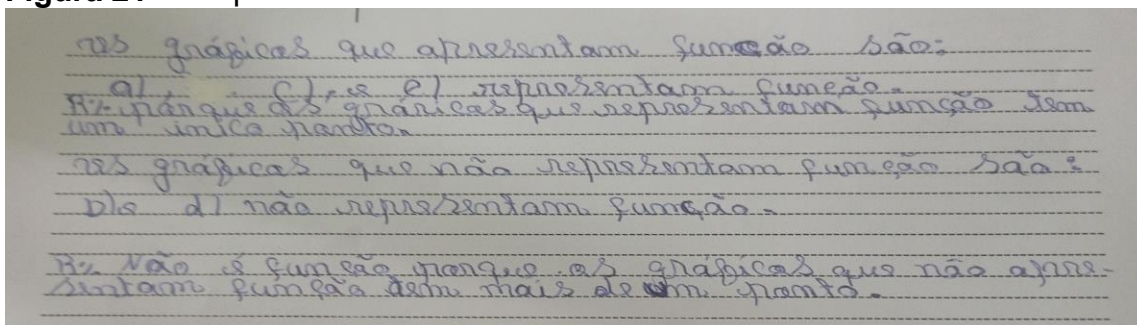 os gráficos que apresentam função são:
a) c), e e) representam função.
R: porque os gráficos que representam função tem
um único ponto.
os gráficos que não representam função são:
b)e d) não representam função.
R: Não é função porque os gráficos que não apre-
sentam função tem mais de um ponto.